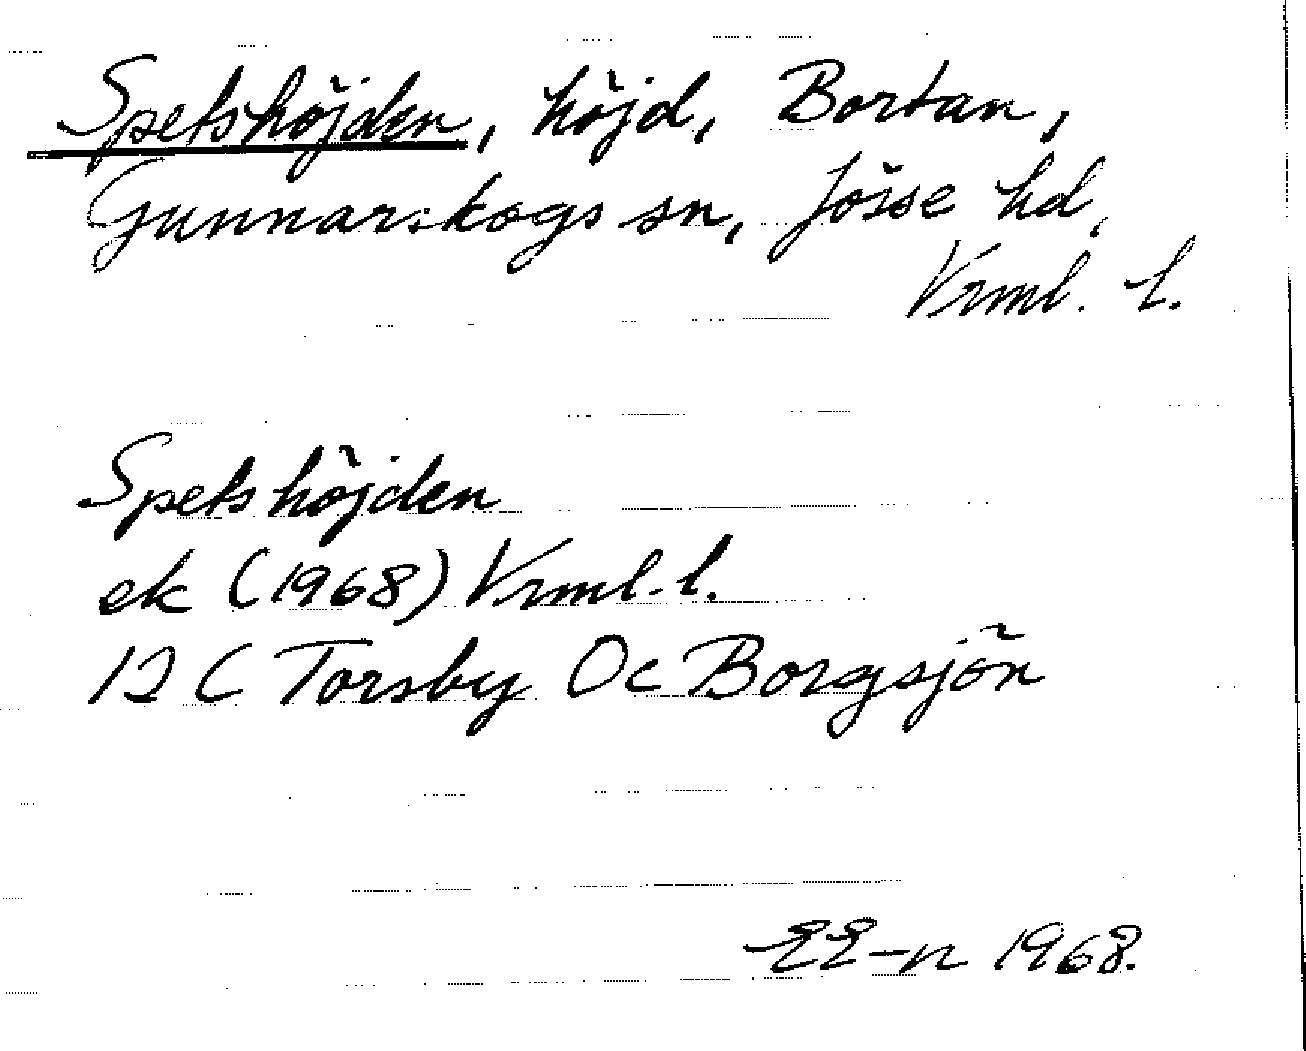 Spetshöjden, höjd, Bortan,
Gunnarskogs sn, Jösse hd,
Vrml. l.
Spetshöjden
ek (1968) Vrml. l.
12 C Torsby Oc Borgsjön
EE-n 1968.